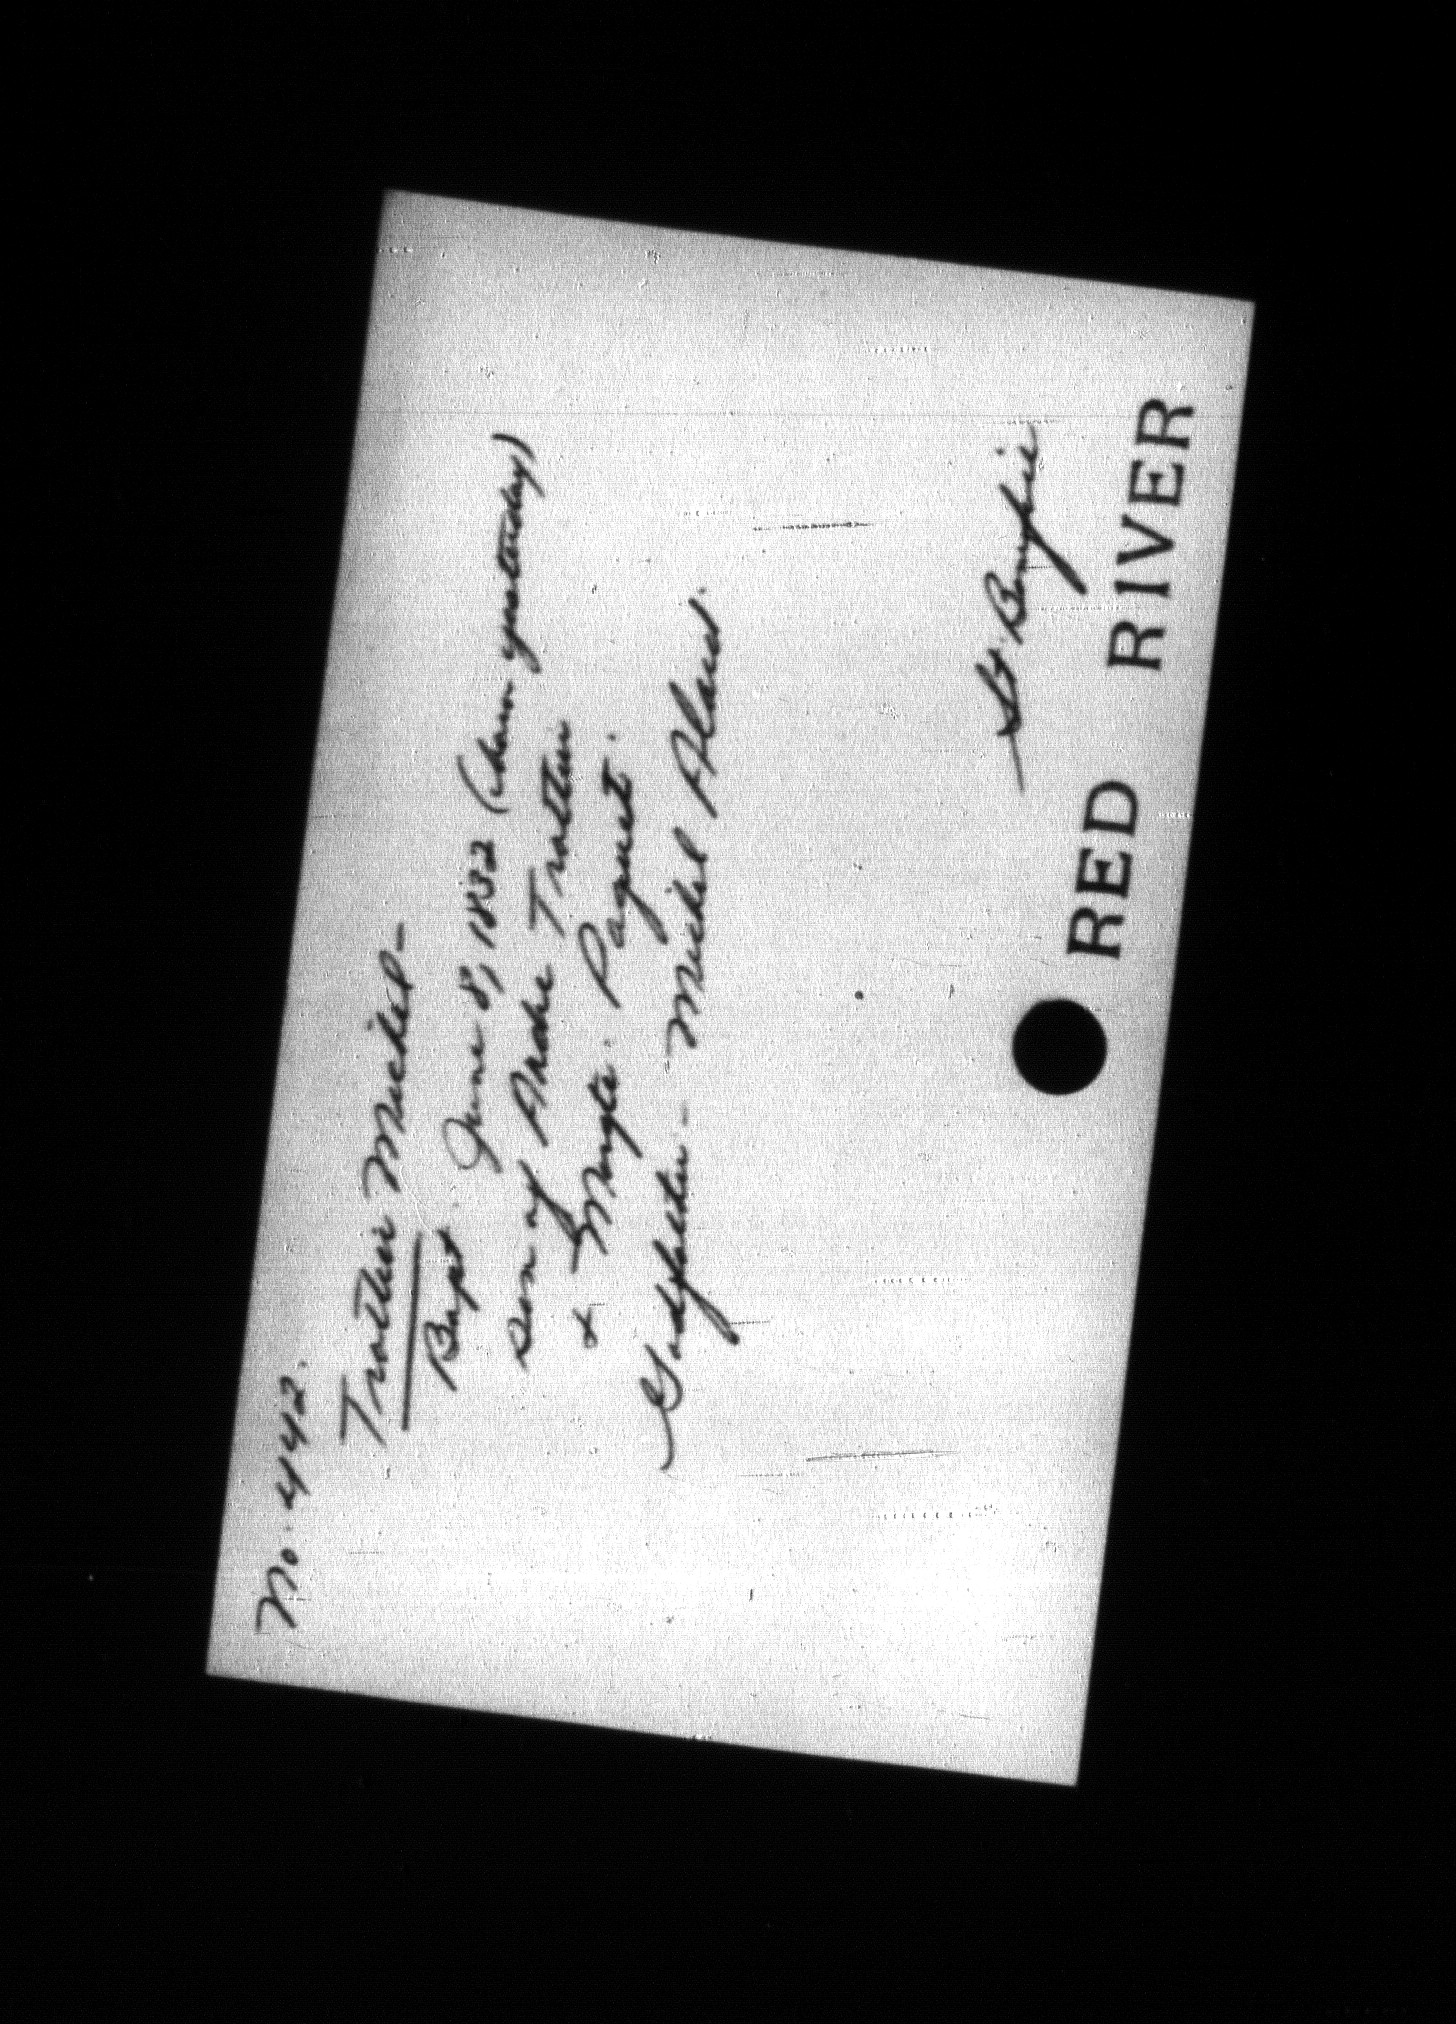 No. 442.
Trottier Michel -
Bapt. June 8, 1832 (born yesterday)
son of Andre Trottier
& Margte. Paquet.
Godfather - Michel Alard.
St Boniface
RED RIVER